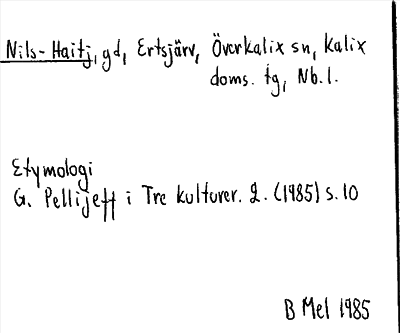 Nils-Haitj, gd, Ertsjärv, Överkalix sn, Kalix
doms. tg, Nb. l.
Etymologi
G. Pellijeff i Tre kulturer. 2. (1985) s. 10
B Mel 1985